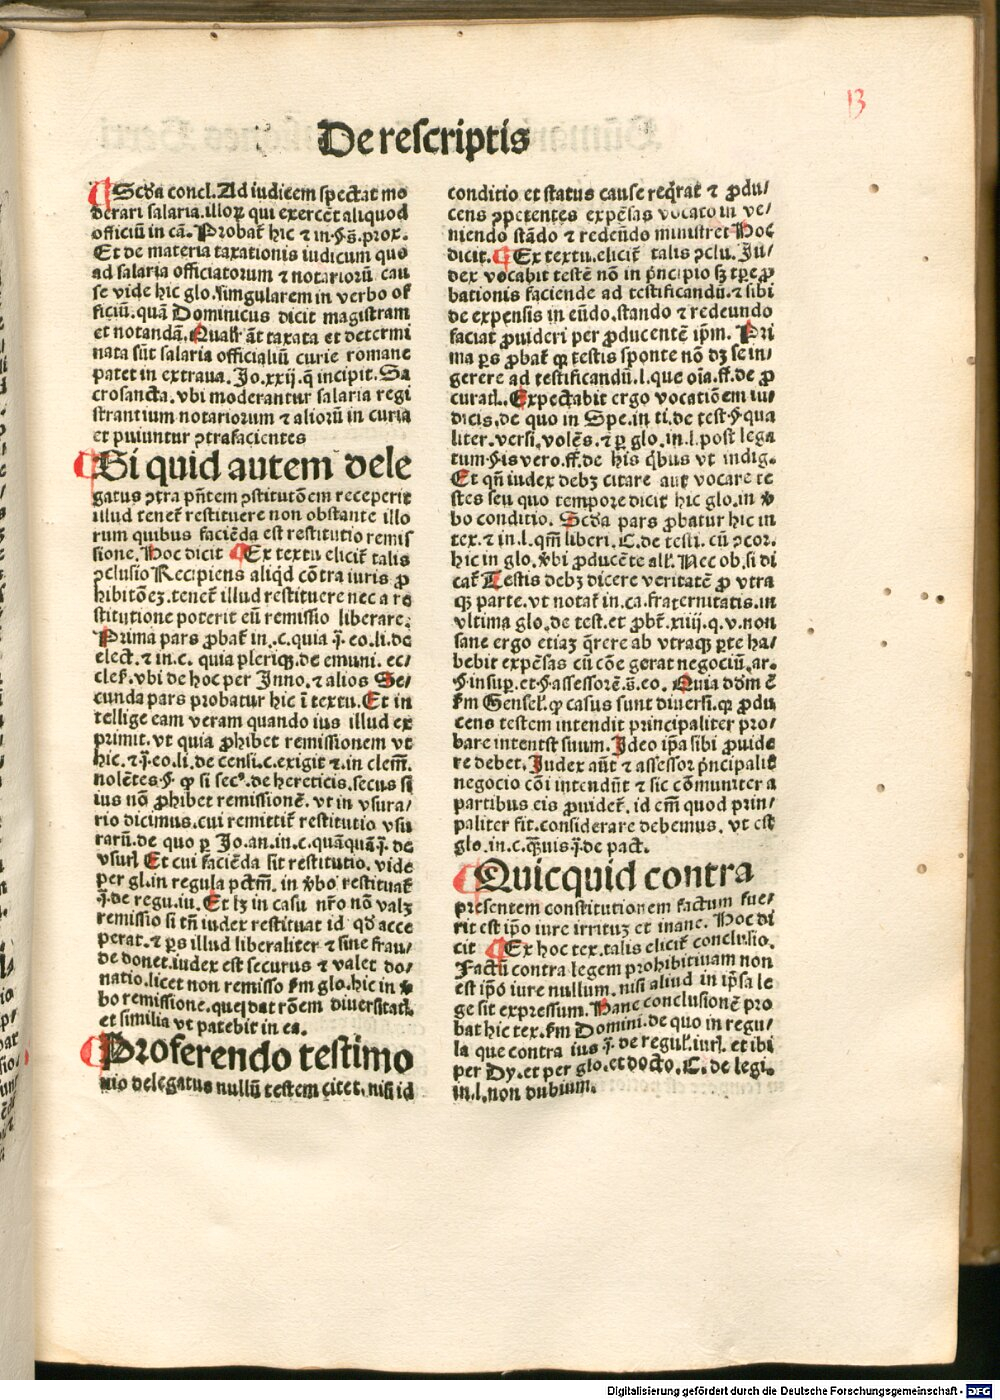 13
De rescriptis
¶ Scḋa concl. Ad iudicem spectat mo
derari salaria. illoꝝ qui exercēt aliquod
officiū in cā. Probať hic ⁊ in .§. s̄. prox.
Et de materia taxationis iudicum quo
ad salaria officiatorum ⁊ notariorū cau
se vide hic glo. singularem in verbo of
ficiū. quā Dominicus dicit magistram
et notandā. Qualr̄ āt taxata et determi
nata sūt salaria officialiū curie romane
patet in extraua. Jo. xxij. q̄ incipit. Sa
crosancta. vbi moderantur salaria regi
strantium notariorum ⁊ aliorū in curia
et puiuntur ꝯtrafacientes
¶ Si quid autem dele
gatus ꝯtra pn̄tem ꝯstitutōem receperit
illud tenet̄ restituere non obstante illo
rum quibus faciēda est restitutio remis
sione. Hoc dicit ¶ Ex textu elicit̄ talis
ꝯclusio Recipiens aliqd̄ cōtra iuris ꝓ
hibitōeꝫ. tenet̄ illud restituere nec a re
stitutione poterit eū remissio liberare.
Prima pars ꝓbat̄ in .c. quia ī. eo. li. de
elect. ⁊ in .c. quia pleriqꝫ. de emuni. ec/
cles̄. vbi de hoc per Inno. ⁊ alios Se/
cunda pars probatur hic ī textu. Et in
tellige eam veram quando ius illud ex
primit. vt quia ꝓhibet remissionem vt
hic. ⁊ ī. eo. li. de censi. c. exigit ⁊ in clem̄.
nolētes .§. ꝙ si secꝰ. de hereticis. secus si
ius nō ꝓhibet remissionē. vt in vsura/
rio dicimus. cui remittit̄ restitutio vsu
rarū. de quo ꝑ Jo. an. in .c. quāquā ī. de
vsurl̄ Et cui faciēda sit restitutio. vide
per gl. in regula pctm̄. in ꝟbo restituat̄
ī. de regu. iu. Et lꝫ in casu nr̄o nō valꝫ
remissio si tn̄ iudex restituat id qd̄ acce
perat. ⁊ ꝑs illud liberaliter ⁊ sine frau/
de donet. iudex est securus ⁊ valet do/
natio. licet non remisso fm̄ glo. hic in ꝟ
bo remissione. que dat rōem diuersitat̄.
et similia vt patebit in ea.
¶ Proferendo testimo
nio delegatus nullū testem citet. nisi id
conditio et status cause reqrat̄ ⁊ ꝓdu/
cens ꝯpetentes expēsas vocato in ve/
niendo stādo ⁊ redeūdo ministret Hoc
dicit. ¶ Ex textu. elicit̄ talis ꝯclu. Ju/
dex vocabit testē nō in pn̄cipio sꝫ tpr̄e ꝓ
bationis faciende ad testificandū. ⁊ sibi
de expensis in eūdo. stando ⁊ redeundo
faciat ꝓuideri per ꝓducentē ipm̄. Pri
ma ꝑs ꝓbat̄ ꝙ testis sponte nō dꝫ se in/
gerere ad testificandū. l. que oīa. ff. de ꝓ
curatl̄. Expectabit ergo vocatiōem iu/
dicis. de quo in Spe. in ti. de test. §. qua
liter. versi. volēs. ⁊ ꝑ glo. in .l. post lega
tum .§. is vero. ff. de his qb̄us vt indig.
Et qn̄ iudex debꝫ citare aut vocare te
stes seu quo tempore dicit hic glo. in ꝟ
bo conditio. Scḋa pars ꝓbatur hic in
tex. ⁊ in .l. qm̄ liberi. C. de testi. cū ꝯcor.
hic in glo. ꝟbi ꝓducēte all̄. Nec ob. si di
cat̄ Testis debꝫ dicere veritatē ꝓ vtra
qꝫ parte. vt notat̄ in .ca. fraternitatis. in
vltima glo. de test. et ꝓbt̄. xiiij. q. v. non
sane ergo etiaꝫ qr̄ere ab vtraqꝫ ꝑte ha/
bebit expēsas cū cōe gerat negociū. ar.
§. insup. et .§. assessorē. s̄. eo. Quia dḋm ē
fm̄ Gensel̄. ꝙ casus sunt diuersi. qꝛ ꝓdu
cens testem intendit principaliter pro/
bare intentōem suum. Jdeo ip̄a sibi ꝓuide
re debet. Judex aūt ⁊ assessor pn̄cipalit̄
negocio cōi intendūt ⁊ sic cōmuniter a
partibus eis ꝓuidet̄. id em̄ quod prin/
paliter fit. considerare debemus. vt est
glo. in .c. q̄uis ī. de pact̄.
¶ Quicquid contra
presentem constitutionem factum fue/
rit est ip̄o iure irrituꝫ et inane. Hoc di
cit ¶ Ex hoc tex. talis elicit̄ conclusio.
Factū contra legem prohibitiuam non
est ip̄o iure nullum. nisi aliud in ip̄sa le
ge sit expressum. Hanc conclusionē pro
bat hic tex. fm̄ Domini. de quo in regu/
la que contra ius ī. de regul̄. iurl̄. et ibi
per Dy. et per glo. et docto. C. de legi.
in .l. non dubium.
Digitalisierung gefördert durch die Deutsche Forschungsgemeinschaft - DFG